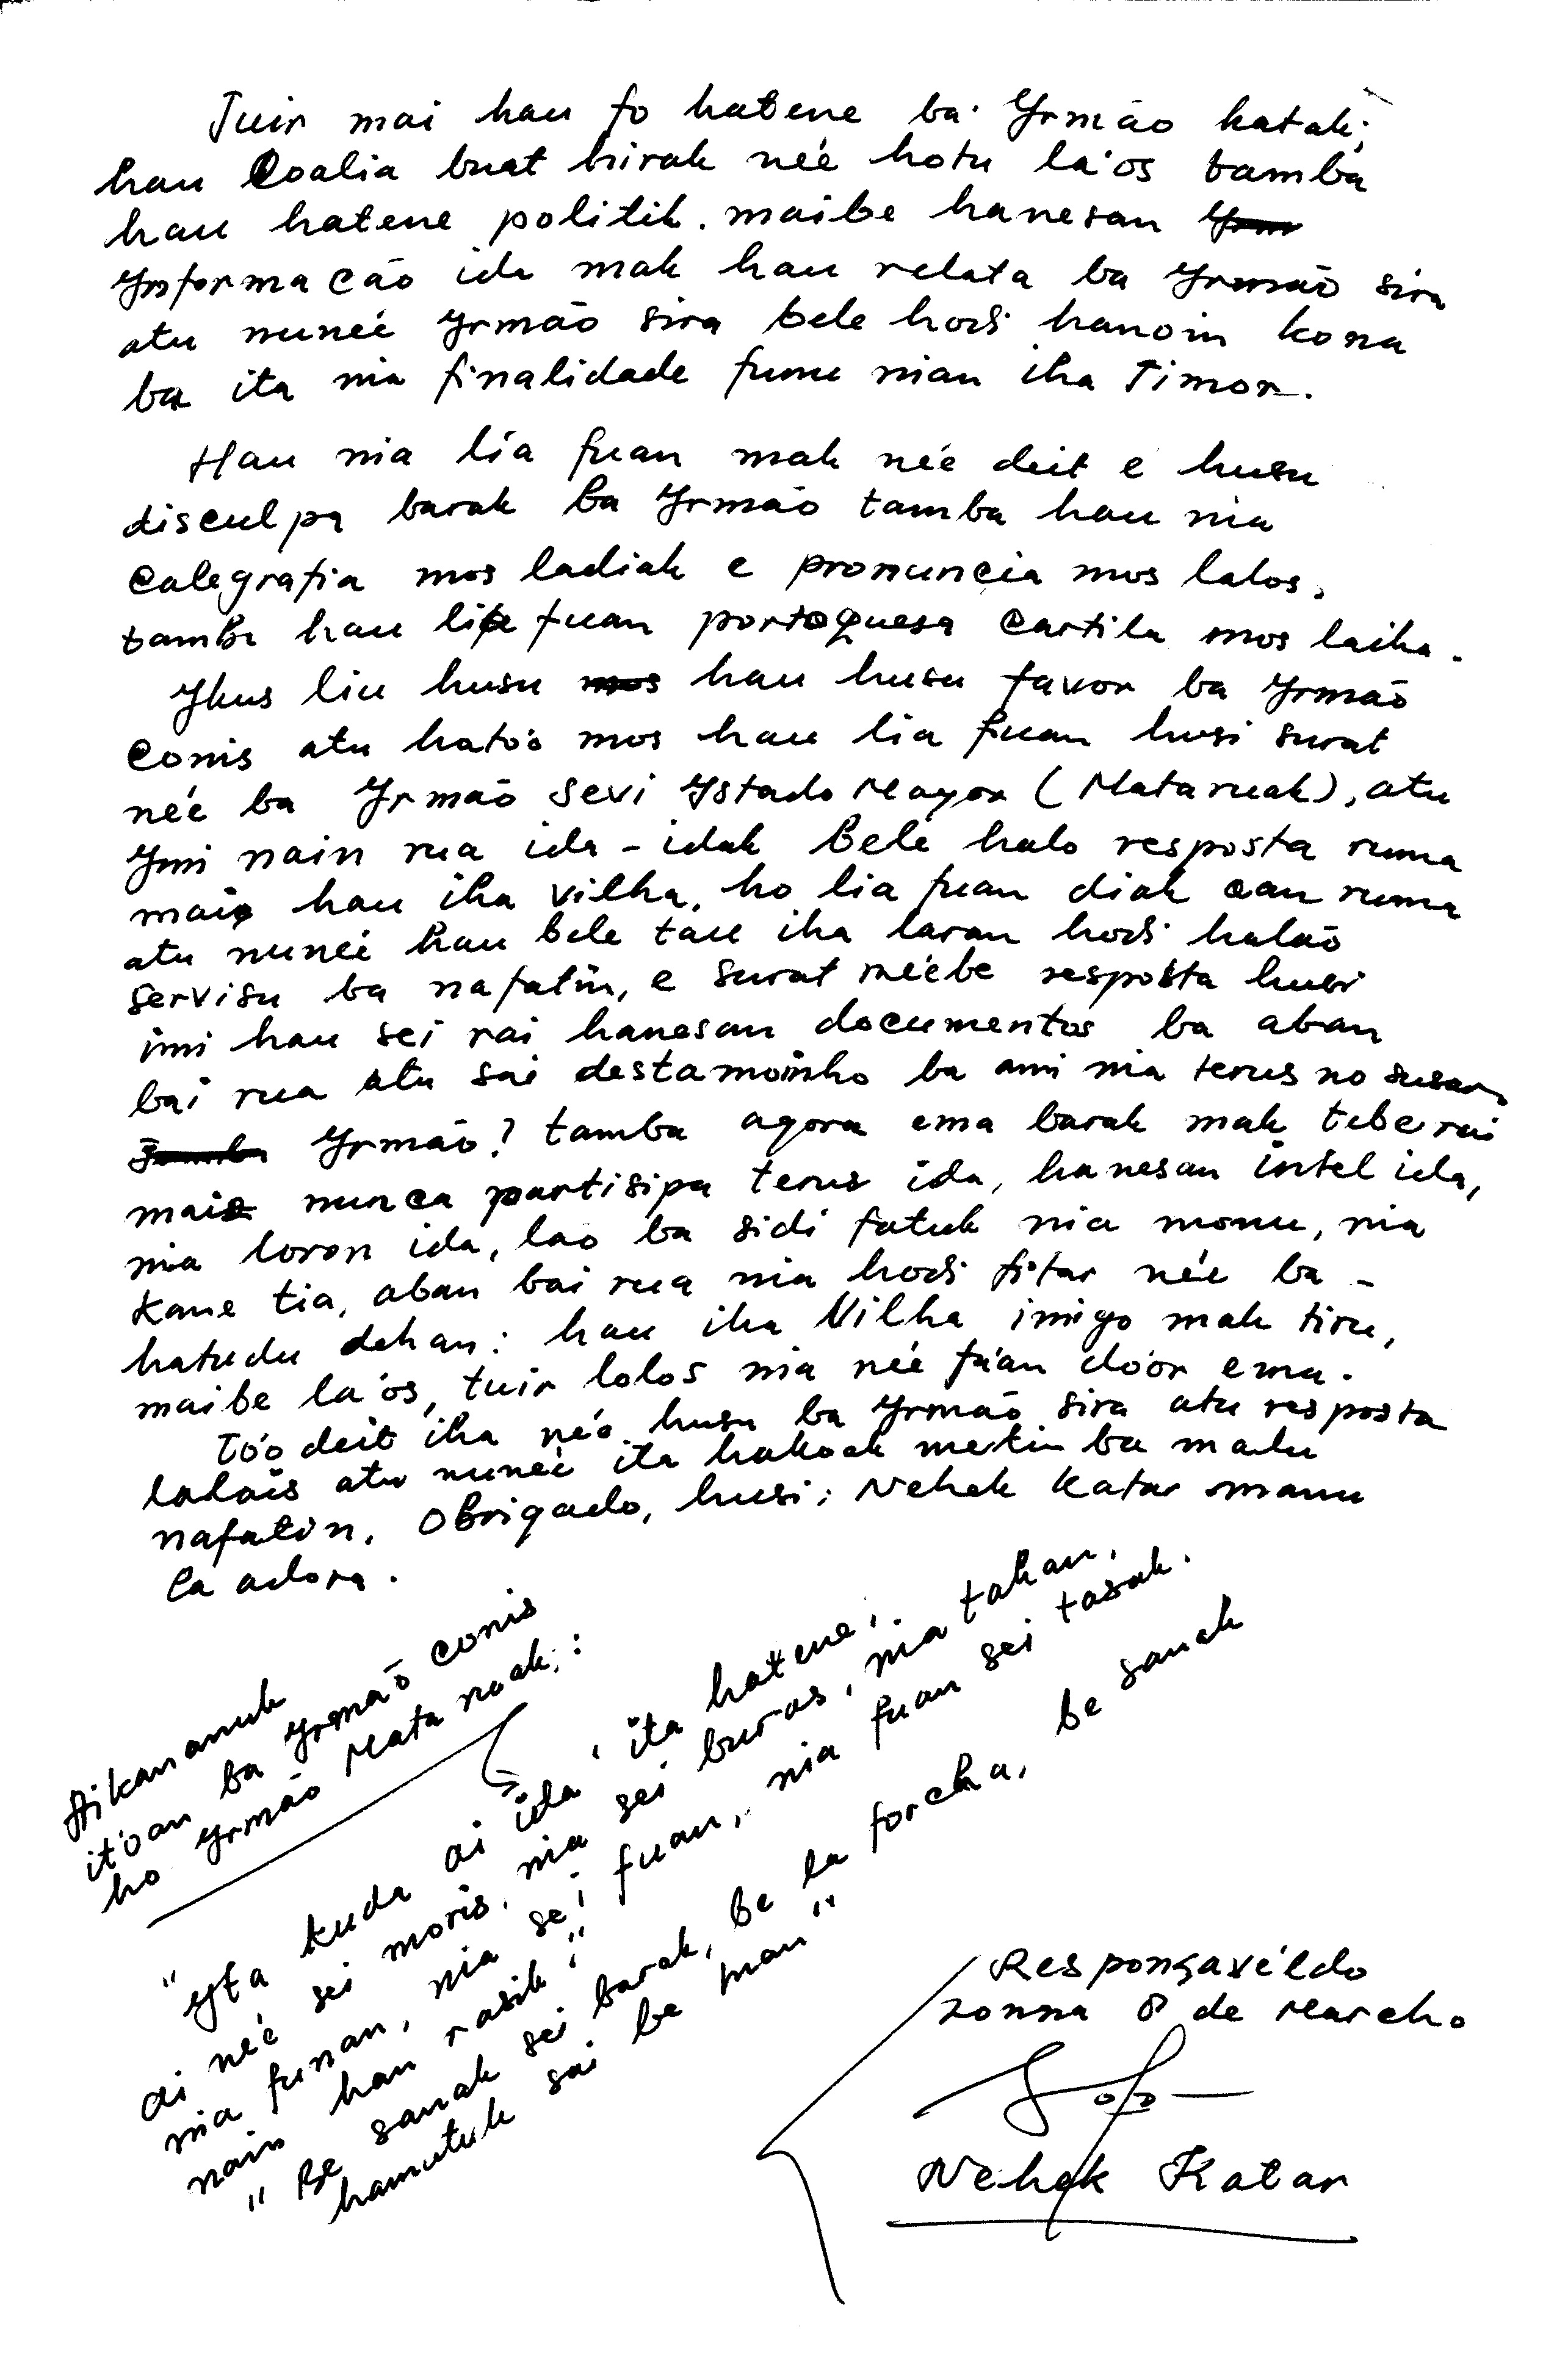 Tuir mai hau fo hatene ba Yrmão katak;
hau Coalia buat hirak neé hotu la'os tamba
hau hatene politik. maibe hanesan
Ynformacão ida mak hau relata ba Yrmão sira
atu nuneé Yrmão sira bele hodi hanoin kona
ba ita nia finalidade funu nian iha Timor.
Hau nia lia fuan mak neé deit e husu
disculpa barak ba Yrmão tamba hau nia
Calegrafia mos ladiak e pronuncia mos lalos,
tamba hau lia fuan portoguesa Cartila mos laiha.
Ykus liu husu hau husu favor ba Yrmão
Conis atu ható'o mos hau lia fuan husi surat
neé ba Yrmão Sevi Ystado Mayor (Mataruak), atu
Ymi nain rua ida-idak bele halo resposta ruma
mai hau iha Vilha, ho lia fuan diak oan ruma
atu nuneé hau bele tau iha laran hodi halaõ
servisu ba nafatin, e surat neébe resposta husi
imi hau sei rai hanesan documentos ba aban
bai rua atu sai destamoinho ba ami nia terus no susar,
Yrmão? tamba agora ema barak mak tebe rai
mais nunca partisipa terus ida, hanesan intel ida,
nia loron ida, lao ba sidi fatuk nia monu, nia
Kane tia, aban bai rua nia hodi fitar neé ba-
hatudu dehan: hau iha Vilha imigo mak tiru,
maibe la'os, tuir lolos nia neé fa'an do'or ema.
Tó'o deit iha neé, husu ba Yrmão sira atu resposta
lalais atu nuneé ita hakoak metin ba malu
nafatin. Obrigado, husi; Nehek Katar manu
la adora.
Aikananuk
ito'an ba Yrmão Conis
ho Yrmão Mata ruak;:
"Yta kuda ai ida, ita hatene;
ai neé sei moris, nia sei buras, nia tahan,
nia funan, nia sei fuan, nia fuan sei tasak.
nain han rasik;"
"Be sanak sei barak, be la forcha, be sanak
hamutuk sai be man"
Responsavél do
Zonna 8 de Marcho
Nehek Katar